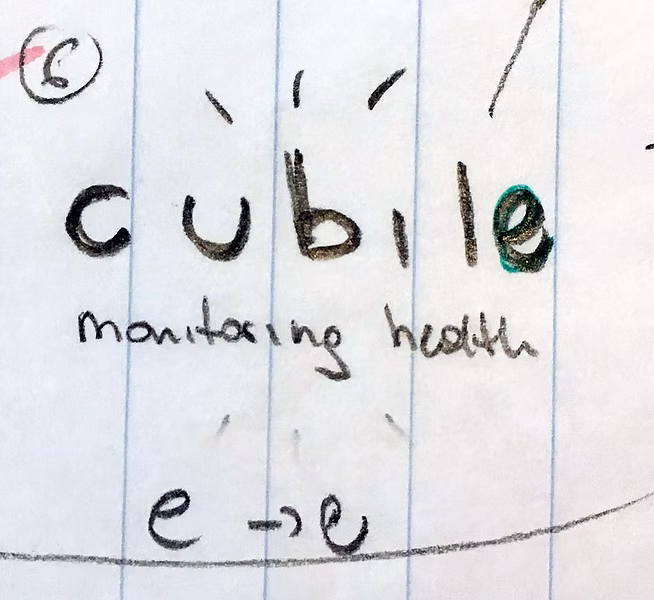 6
cubile
monitoring health
e → e